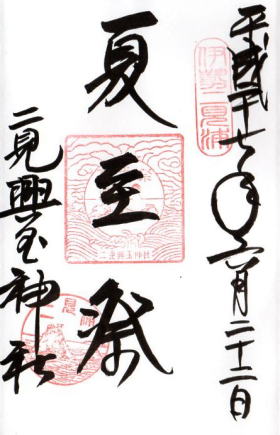 平成十七年六月二十二日
伊勢二見浦
夏至祭
二見興玉神社
二見興玉神社